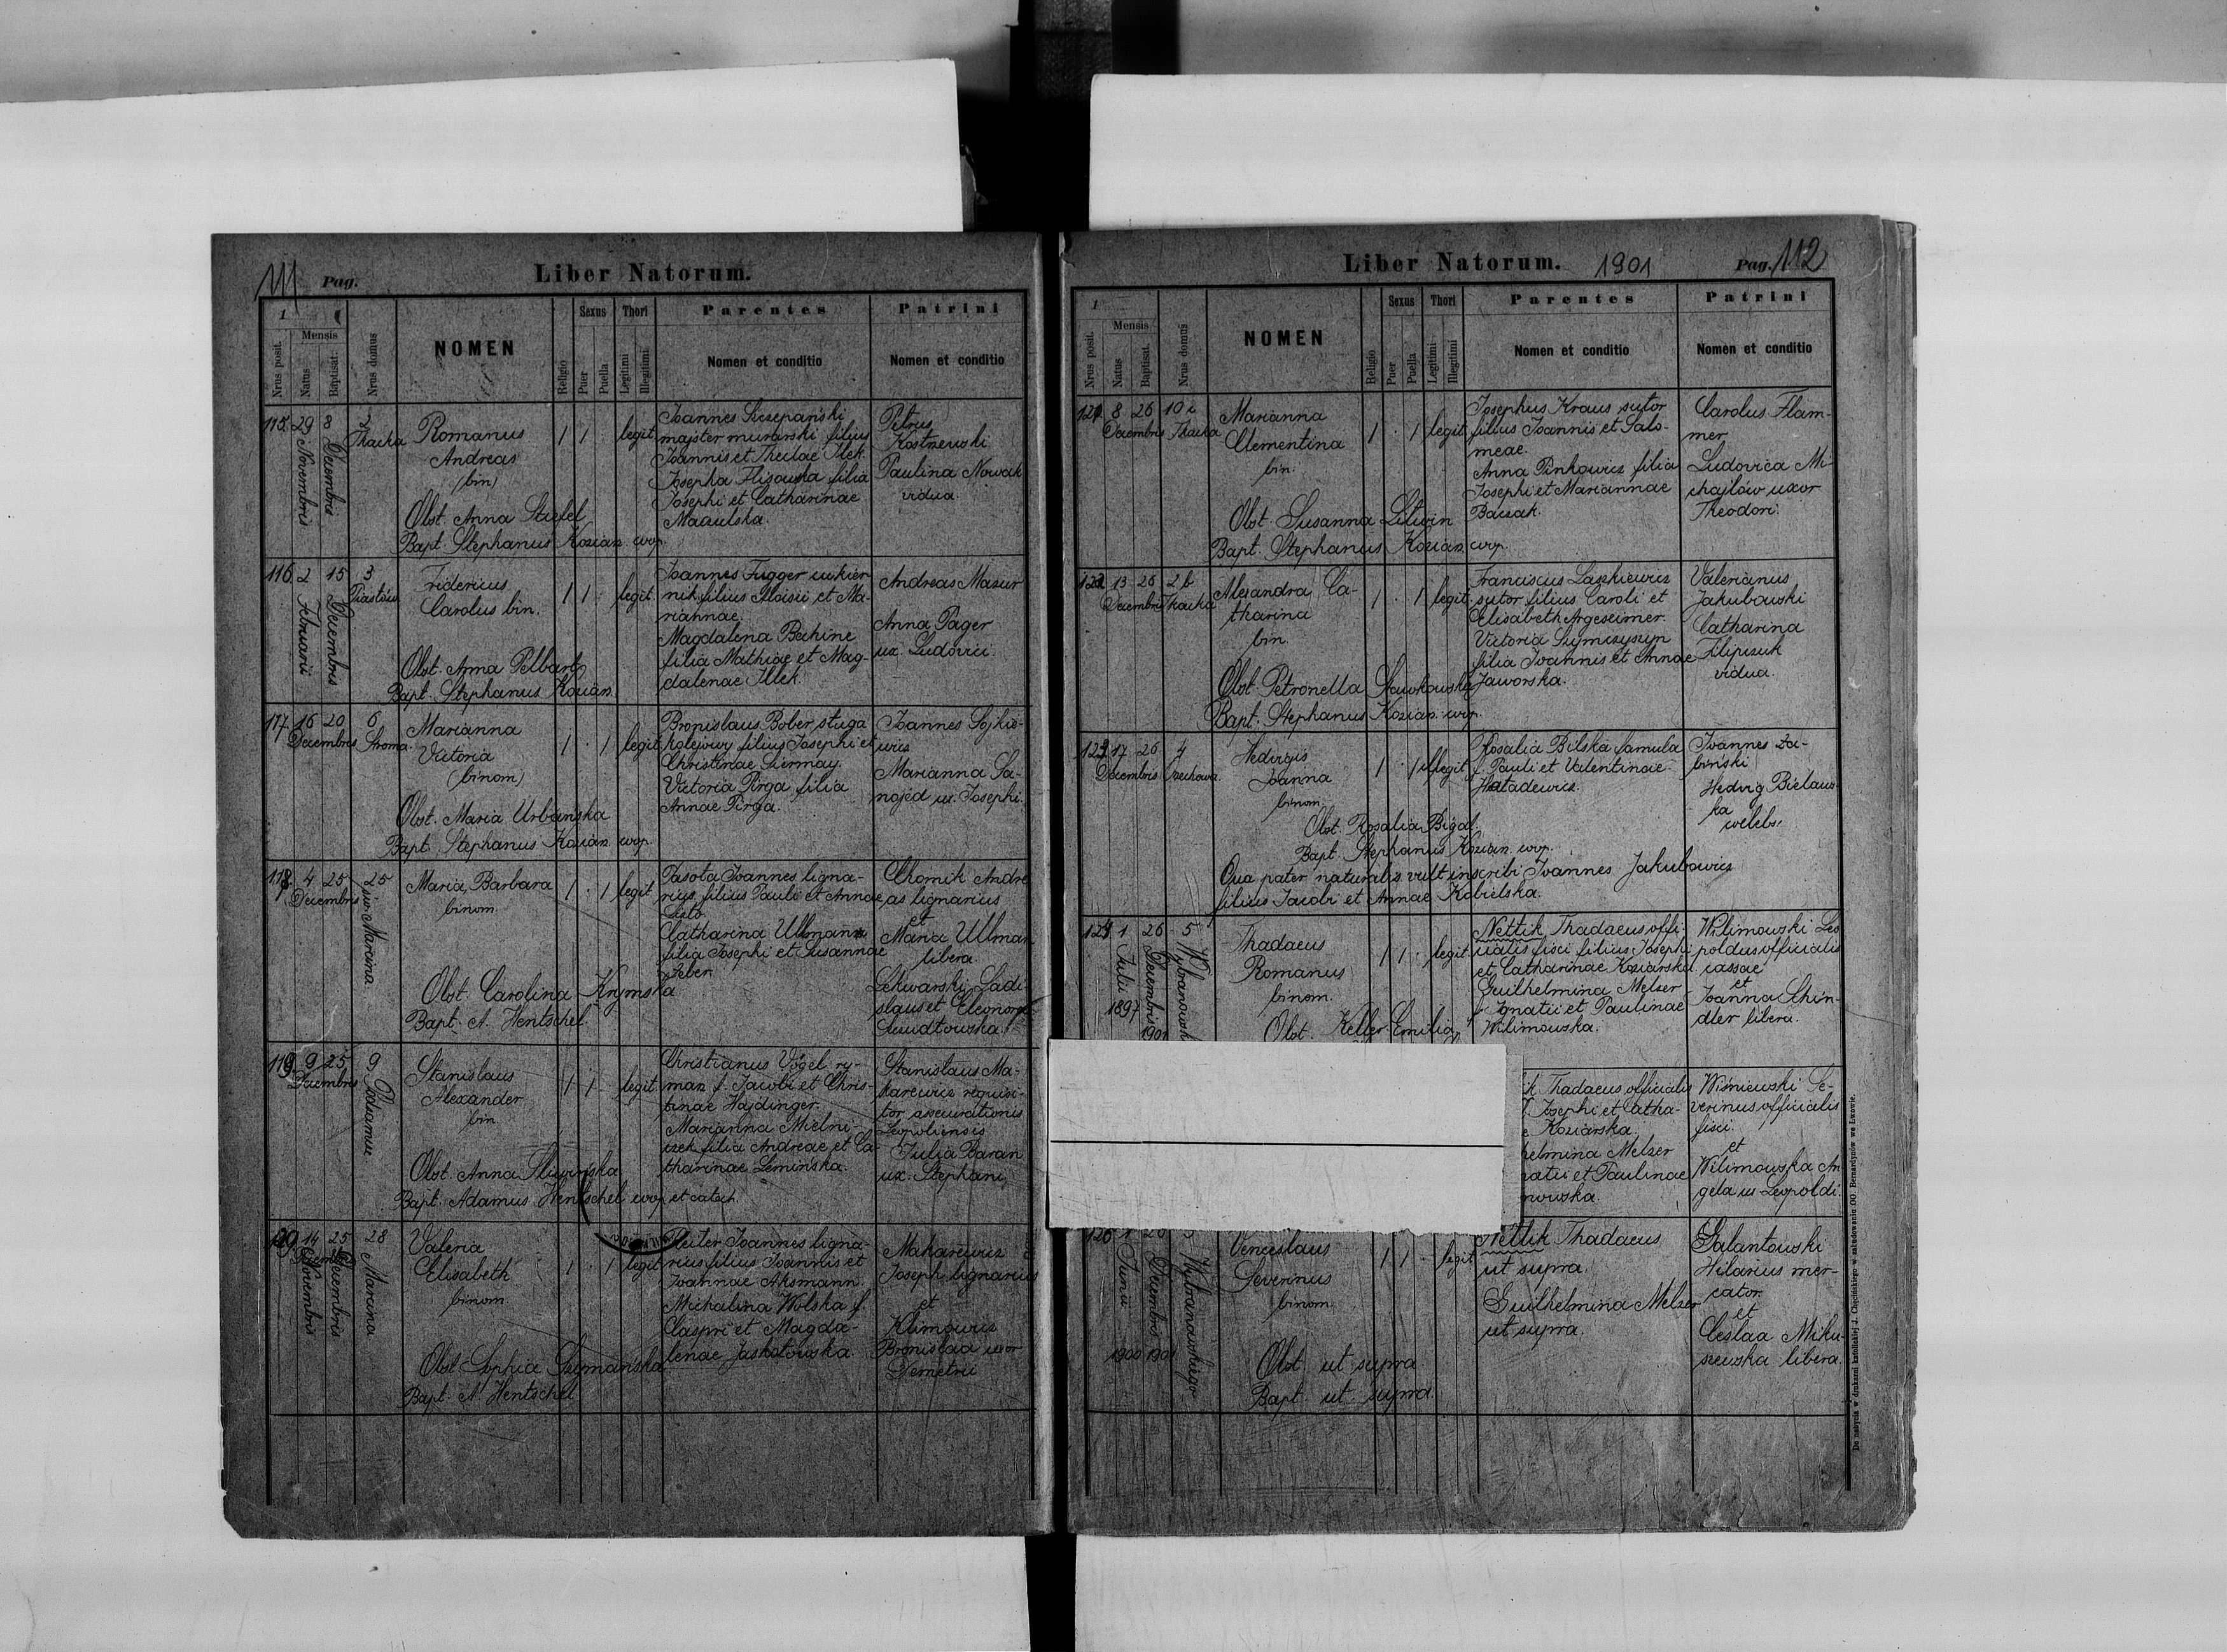 111 Pag.
Liber Natorum.
1
Nrus posit.
Mensis
Natus
Baptisat.
Nrus domus
NOMEN
Religio
Sexus
Puer
Puella
Thori
Legitimi
Illegitimi
Parentes
Nomen et conditio
Patrini
Nomen et conditio
115. 29 Novembris 8 Decembris
Tkacka
Romanus
Andreas
(bin)
Obst. Anna Stiefel
Bapt. Stephanus Kozian coop.
1 1 · legit
Joannes Szczepański
majster murarski filius
Joannis et Theclae Ilek.
Josepha Flisowska filia
Josephi et Catharinae
Mazulska.
Petrus
Kostrzewski
Paulina Nowak
vidua
116. 2 Februarii 15 Decembris
3
Piastów
Fridericus
Carolus bin.
Obst. Anna Pelbart
Bapt. Stephanus Kozian
1 1 · legit
Joannes Fugger cukier-
nik filius Aloisii et Ma-
riannae.
Magdalena Bechine
filia Mathiae et Mag-
dalenae Illek.
Andreas Mazur
Anna Pager
ux. Ludovici.
117. 16 20
Decembris
6
Stroma.
Marianna
Victoria
(binom)
Obst. Maria Urbańska
Bapt. Stephanus Kozian coop.
1 · 1 legit
Bronislaus Bober sługa
kolejowy filius Josephi et
Christinae Siermay.
Victoria Pirga filia
Annae Pirga.
Joannes Sojkie-
wicz
Marianna Sa-
nojed ux. Josephi.
118. 4 25
Decembris
25
Marcina.
Maria, Barbara
binom.
Obst. Carolina Krymska
Bapt. A. Hentschel.
1 · 1 legit
Pasota Joannes ligna-
rius, filius Pauli et Annae
Listo.
Catharina Ullmann
filia Josephi et Susannae
Zeber.
Chomik Andre
as lignarius
et
Maria Ullman
libera
Lekwarski Ladi-
slaus et Eleonora
119. 9 25
Decembris
9
Podzamcze.
Stanislaus
Alexander
bin.
Obst. Anna Śliwińska
Bapt. Adamus Hentschel coop et catech.
1 1 · legit
Christianus Vogel ry-
marz f. Jacobi et Chris-
tinae Hajdinger.
Marianna Mielni-
czek filia Andreae et Ca-
tharinae Lemińska.
Stanislaus Ma-
karewicz requisi-
tor assecurationis
Leopoliensis
Julia Baran
ux. Stephani
120. 14 25 Decembris
28
Marcina
Valeria
Elisabeth
binom.
Obst. Sophia Szymańska
Bapt. A. Hentschel
1 · 1 legit
Reiter Joannes ligna-
rius filius Joannis et
Joannae Aksmann.
Michalina Wolska f.
Caspri et Magda-
lenae Jaskotowska.
Makarewicz
Joseph lignarius
et
Klimowicz
Bronislaa uxor
Demetrii
Liber Natorum. 1901 Pag. 112
1
Nrus posit.
Mensis
Natus
Baptisat.
Nrus domus
NOMEN
Religio
Sexus
Puer
Puella
Thori
Legitimi
Illegitimi
Parentes
Nomen et conditio
Patrini
Nomen et conditio
121. 8 26
Decembris
10 c
Tkacka
Marianna
Clementina
bin.
Obst. Susanna Litwin
Bapt. Stephanus Kozian coop.
1 · 1 legit
Josephus Kraus sutor
filius Joannis et Salo-
meae.
Anna Pinkowicz filia
Josephi et Mariannae
Baczak.
Carolus Flam-
mer
Ludovica Mi-
chajlów uxor
Theodori.
122. 13 26
Decembris
2 b
Tkacka
Alexandra Ca-
tharina
bin
Obst. Petronella Stawkowska
Bapt. Stephanus Kozian coop.
1 · 1 legit
Franciscus Laszkiewicz
sutor filius Caroli et
Elisabeth Argeseimer.
Victoria Szymczyszyn
filia Joannis et Annae
Jaworska.
Valerianus
Jakubowski
Catharina
Filipczuk
vidua.
123. 17 26
Decembris
4
Hedvigis
Joanna
binom.
Obst. Rosalia Bigal
Bapt. Stephanus Kozian coop.
1 · 1 illegit
Rosalia Bilska famula
f. Pauli et Valentinae
Hatadewicz.
Joannes Za-
biński
Hedvig Bielaws
ka
coelebs.
Qua pater naturalis vult inscribi Joannes Jakubowicz
filius Jacobi et Annae Kobielska.
124. 1 Julii 1897 26 Decembris 1901
5
Thadaeus
Romanus
binom.
Obst. Keller Emilia
1 1 · legit
Nettik Thadaeus offi-
cialis fisci filius Josephi
et Catharinae Koziarska.
Guilhelmina Melzer
f. Ignatii et Paulinae
Wilimowska.
Wilimowski Leo
poldus officialis
cassae
et
Joanna Schin-
dler libera.
Thadaeus officialis
Josephi et Catha-
Koziarska.
Melzer
et Paulinae
Wiśniewski Se-
verinus officialis
fisci.
et
Wilimowska An
gela ux Leopoldi.
126. 1 Junii 1900 26 Decembris 1901
5 Wybranowskiego
Venceslaus
Severinus
binom.
Obst. ut supra
Bapt. ut supra.
1 1 · legit
Nettik Thadaeus
ut supra.
Guilhelmina Melzer
ut supra.
Galantowski
Hilarius mer-
cator.
et
Ceslaa Miku-
szewska libera.
Do nabycia w drukarni katolickiej J. Chęcińskiego w zabudowaniu OO. Bernardynów we Lwowie.